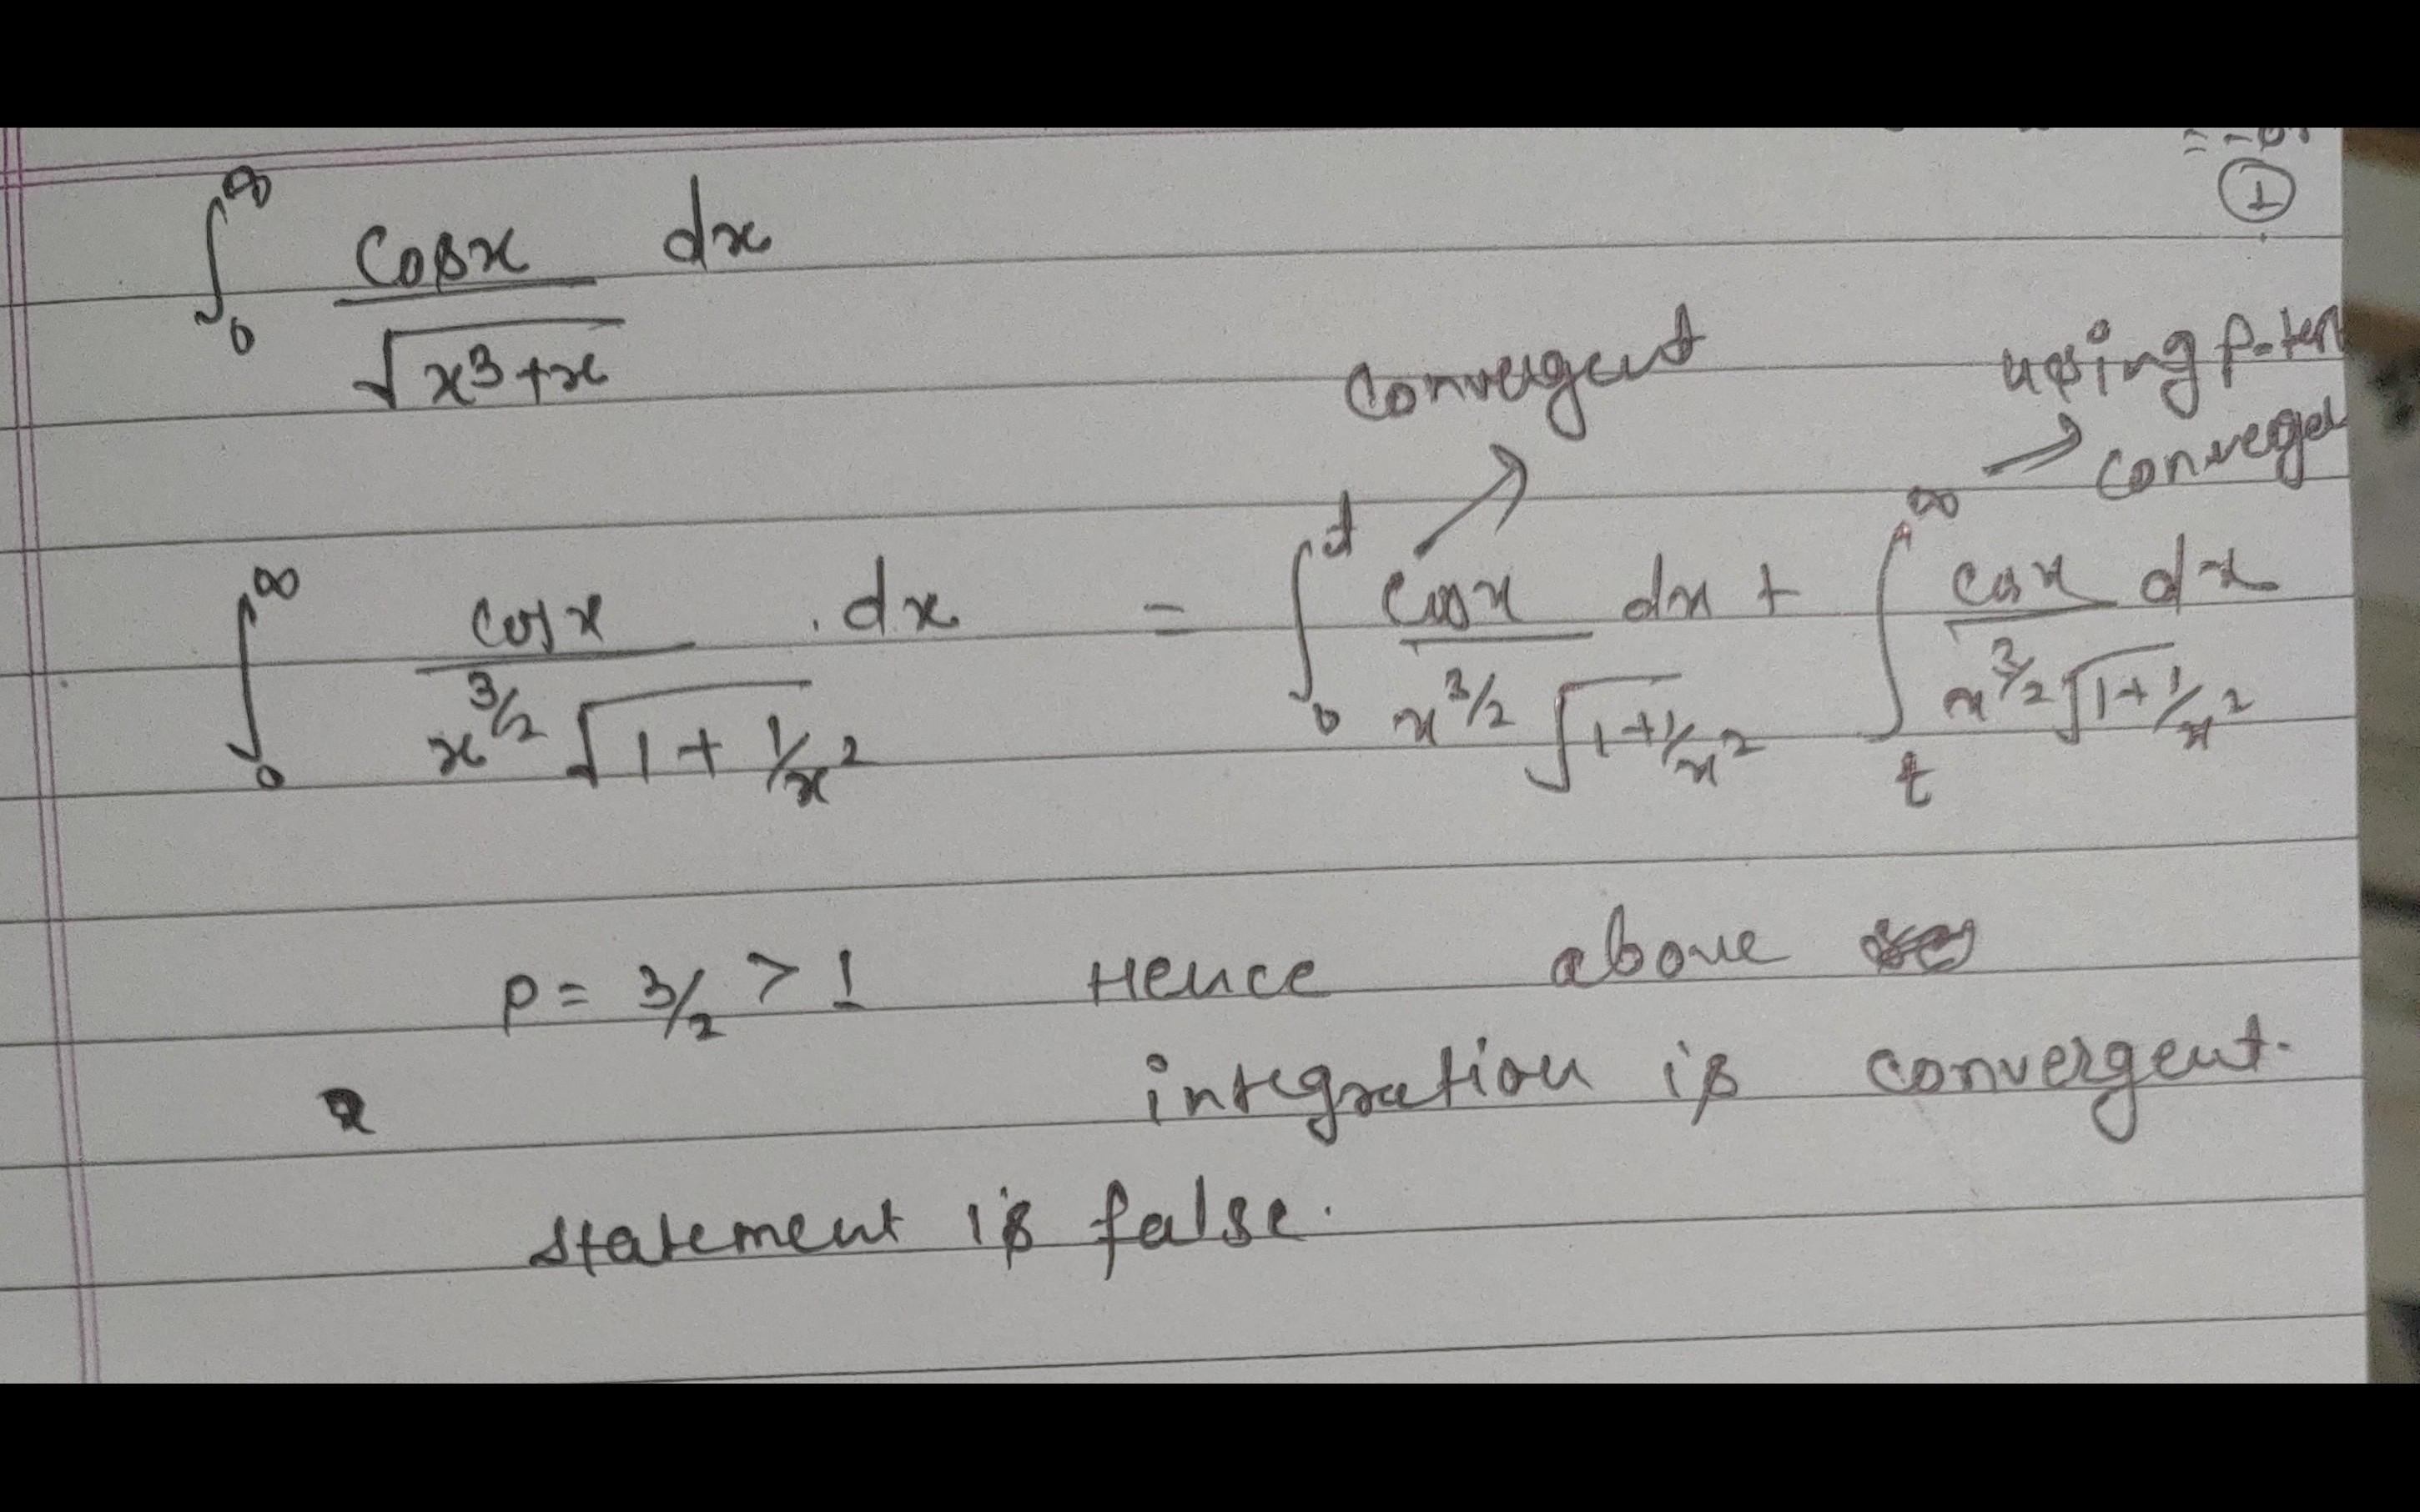 ①
∫₀^∞ Cosx / √(x³+x) dx
Convergent
using P-test
∫₀^∞ cosx / (x^3/2 √(1 + 1/x²)) . dx = ∫₀^t cosx / (x^3/2 √(1+1/x²)) dx + ∫_t^∞ cosx / (x^3/2 √(1+1/x²)) dx
P = 3/2 > 1 Hence above
integration is convergent.
statement is false.